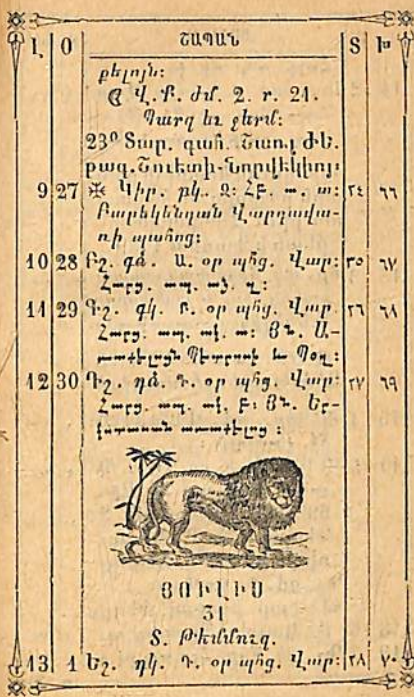 Լ Օ ՇԱՊԱՆ Տ Խ
քելոյն։
☾ Վ. Ք. ժմ. 2. ր. 21.
Պարզ եւ ջերմ։
23º Տար. գահ. Շառլ ԺԵ.
թագ. Շուետի-Նորվեկիոյ։
9 27 ✠ Կիր. բկ. Զ։ ՀԲ. ա. տ։ ٢٤ ٦٦
Բարեկենդան Վարդավա-
ռի պահոց։
10 28 Բշ. գձ. Ա. օր պհց. Վար։ ٢٥ ٦٧
Հարց.
11 29 Գշ. գկ. Բ. օր պհց. Վար ٢٦ ٦٨
Հարց. Յն. Ա-
ռաքելոցն Պետրոսի և Պօղ։
12 30 Դշ. դձ. Գ. օր պհց. Վար։ ٢٧ ٦٩
Հարց. Յն. Եր-
կոտասան առաքելոց։
ՅՈՒԼԻՍ
31
Տ. Թեմմուզ.
13 1 Եշ. դկ. Դ. օր պհց. Վար։ ٢٨ ٧٠